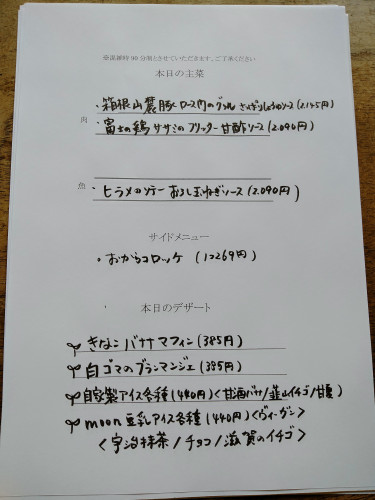 ※混雑時90分制とさせていただきます。ご了承ください
本日の主菜
肉
・箱根山麓豚ロース肉のグリル さんぞくしょうゆソース(2.145円)
・富士の鶏ササミのフリッター甘酢ソース(2.090円)
魚
・ヒラメのソテー おろし玉ねぎソース(2.090円)
サイドメニュー
・おからコロッケ (1コ269円)
本日のデザート
きなこバナナマフィン(385円)
白ゴマのブランマンジェ(385円)
自家製アイス各種(440円)<甘酒バナナ/韮山イチゴ/甘夏>
moon豆乳アイス各種(440円)<ヴィーガン>
<宇治抹茶/チョコ/滋賀のイチゴ>